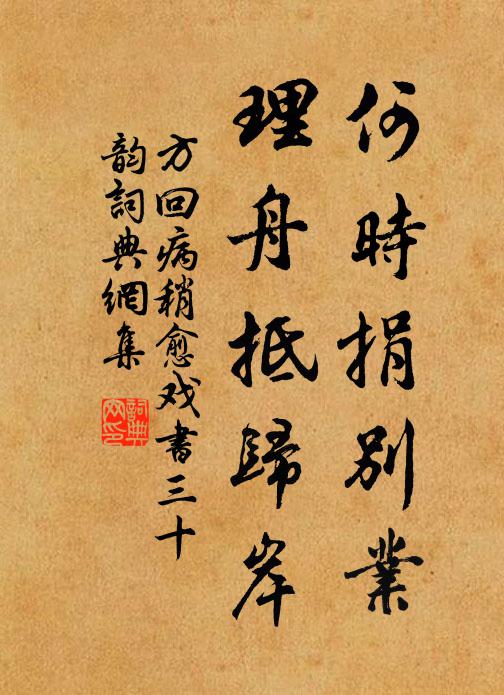 何時捐別業
理舟抵歸岸
方回病稍愈戏書三十
韵詞典網集
詞典網印